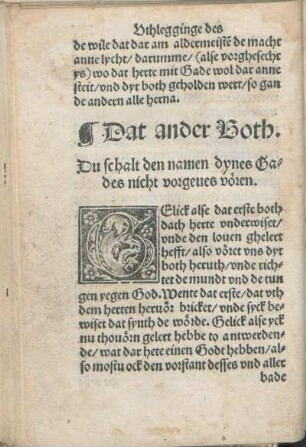 Vthlegginge des
de wůle dat dar am aldermeistē de macht
anne lycht/ darumme/ (alse vorghesecht
ys) wo dat herte mit Gade wol dar anne
steit/ vnd dyt both geholden wert/ so gan
de andern alle herna.
¶ Dat ander Both.
Du schalt den namen dynes Ga⸗
des nicht vorgeues vören.
GElick alse dat erste both
dath herte vnderwiset/
vnde den louen ghelert
hefft/ also vöret vns dyt
both heruth/ vnde rich⸗
tet de mundt vnd de tun
gen yegen God. Wente dat erste/ dat vth
dem herten heruör bricket/ vnde syck be⸗
wiset dat synth de wörde. Gelick alse yck
nu thouörn gelert hebbe to antwerden⸗
de/ wat dar hete einen Godt hebben/ al⸗
so mostu ock den vorstant desses vnd aller
bade